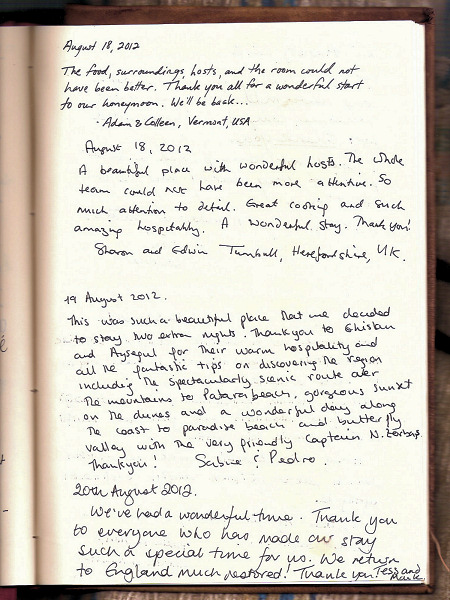 August 18, 2012
The food, surroundings, hosts, and the room could not
have been better. Thank you all for a wonderful start
to our honeymoon. We'll be back...
- Adam & Colleen, Vermont, USA
August 18, 2012
A beautiful place with wonderful hosts. The whole
team could not have been more attentive. So
much attention to detail. Great cooking and such
amazing hospitality. A wonderful stay. Thank you!
Sharon and Edwin Turnbull, Herefordshire, UK.
19 August 2012.
This was such a beautiful place that we decided
to stay two extra nights. Thankyou to Ghislain
and Aysegul for their warm hospitality and
all the fantastic tips on discovering the region
including the spectacularly scenic route over
the mountains to Patara beach, gorgeous sunset
on the dunes and a wonderful day along
the coast to paradise beach and butterfly
valley with the very friendly Captain N. Zorbas.
Thankyou! Sabine & Pedro.
20th August 2012.
We've had a wonderful time. Thank you
to everyone who has made our stay
such a special time for us. We return
to England much restored! Thank you. Tess and
Mark.